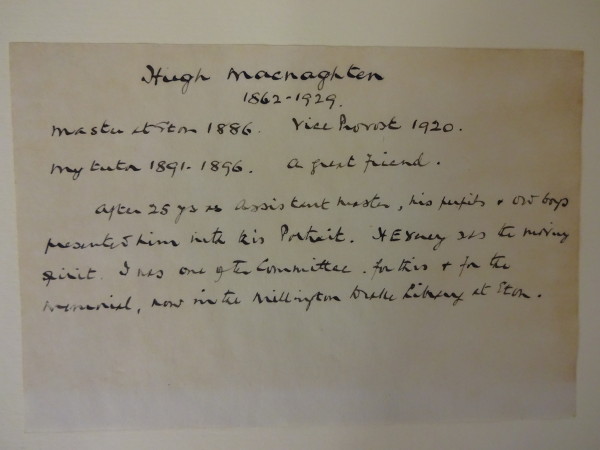 Hugh Macnaghten
1862-1929.
Master at Eton 1886. Vice Provost 1920.
My tutor 1891-1896. A great friend.
After 25 ys as Assistant Master, his pupils & old boys
presented him with his Portrait. was the moving
spirit. I was one of the Committee for this & for the
memorial, now in the Millington Drake Library at Eton.